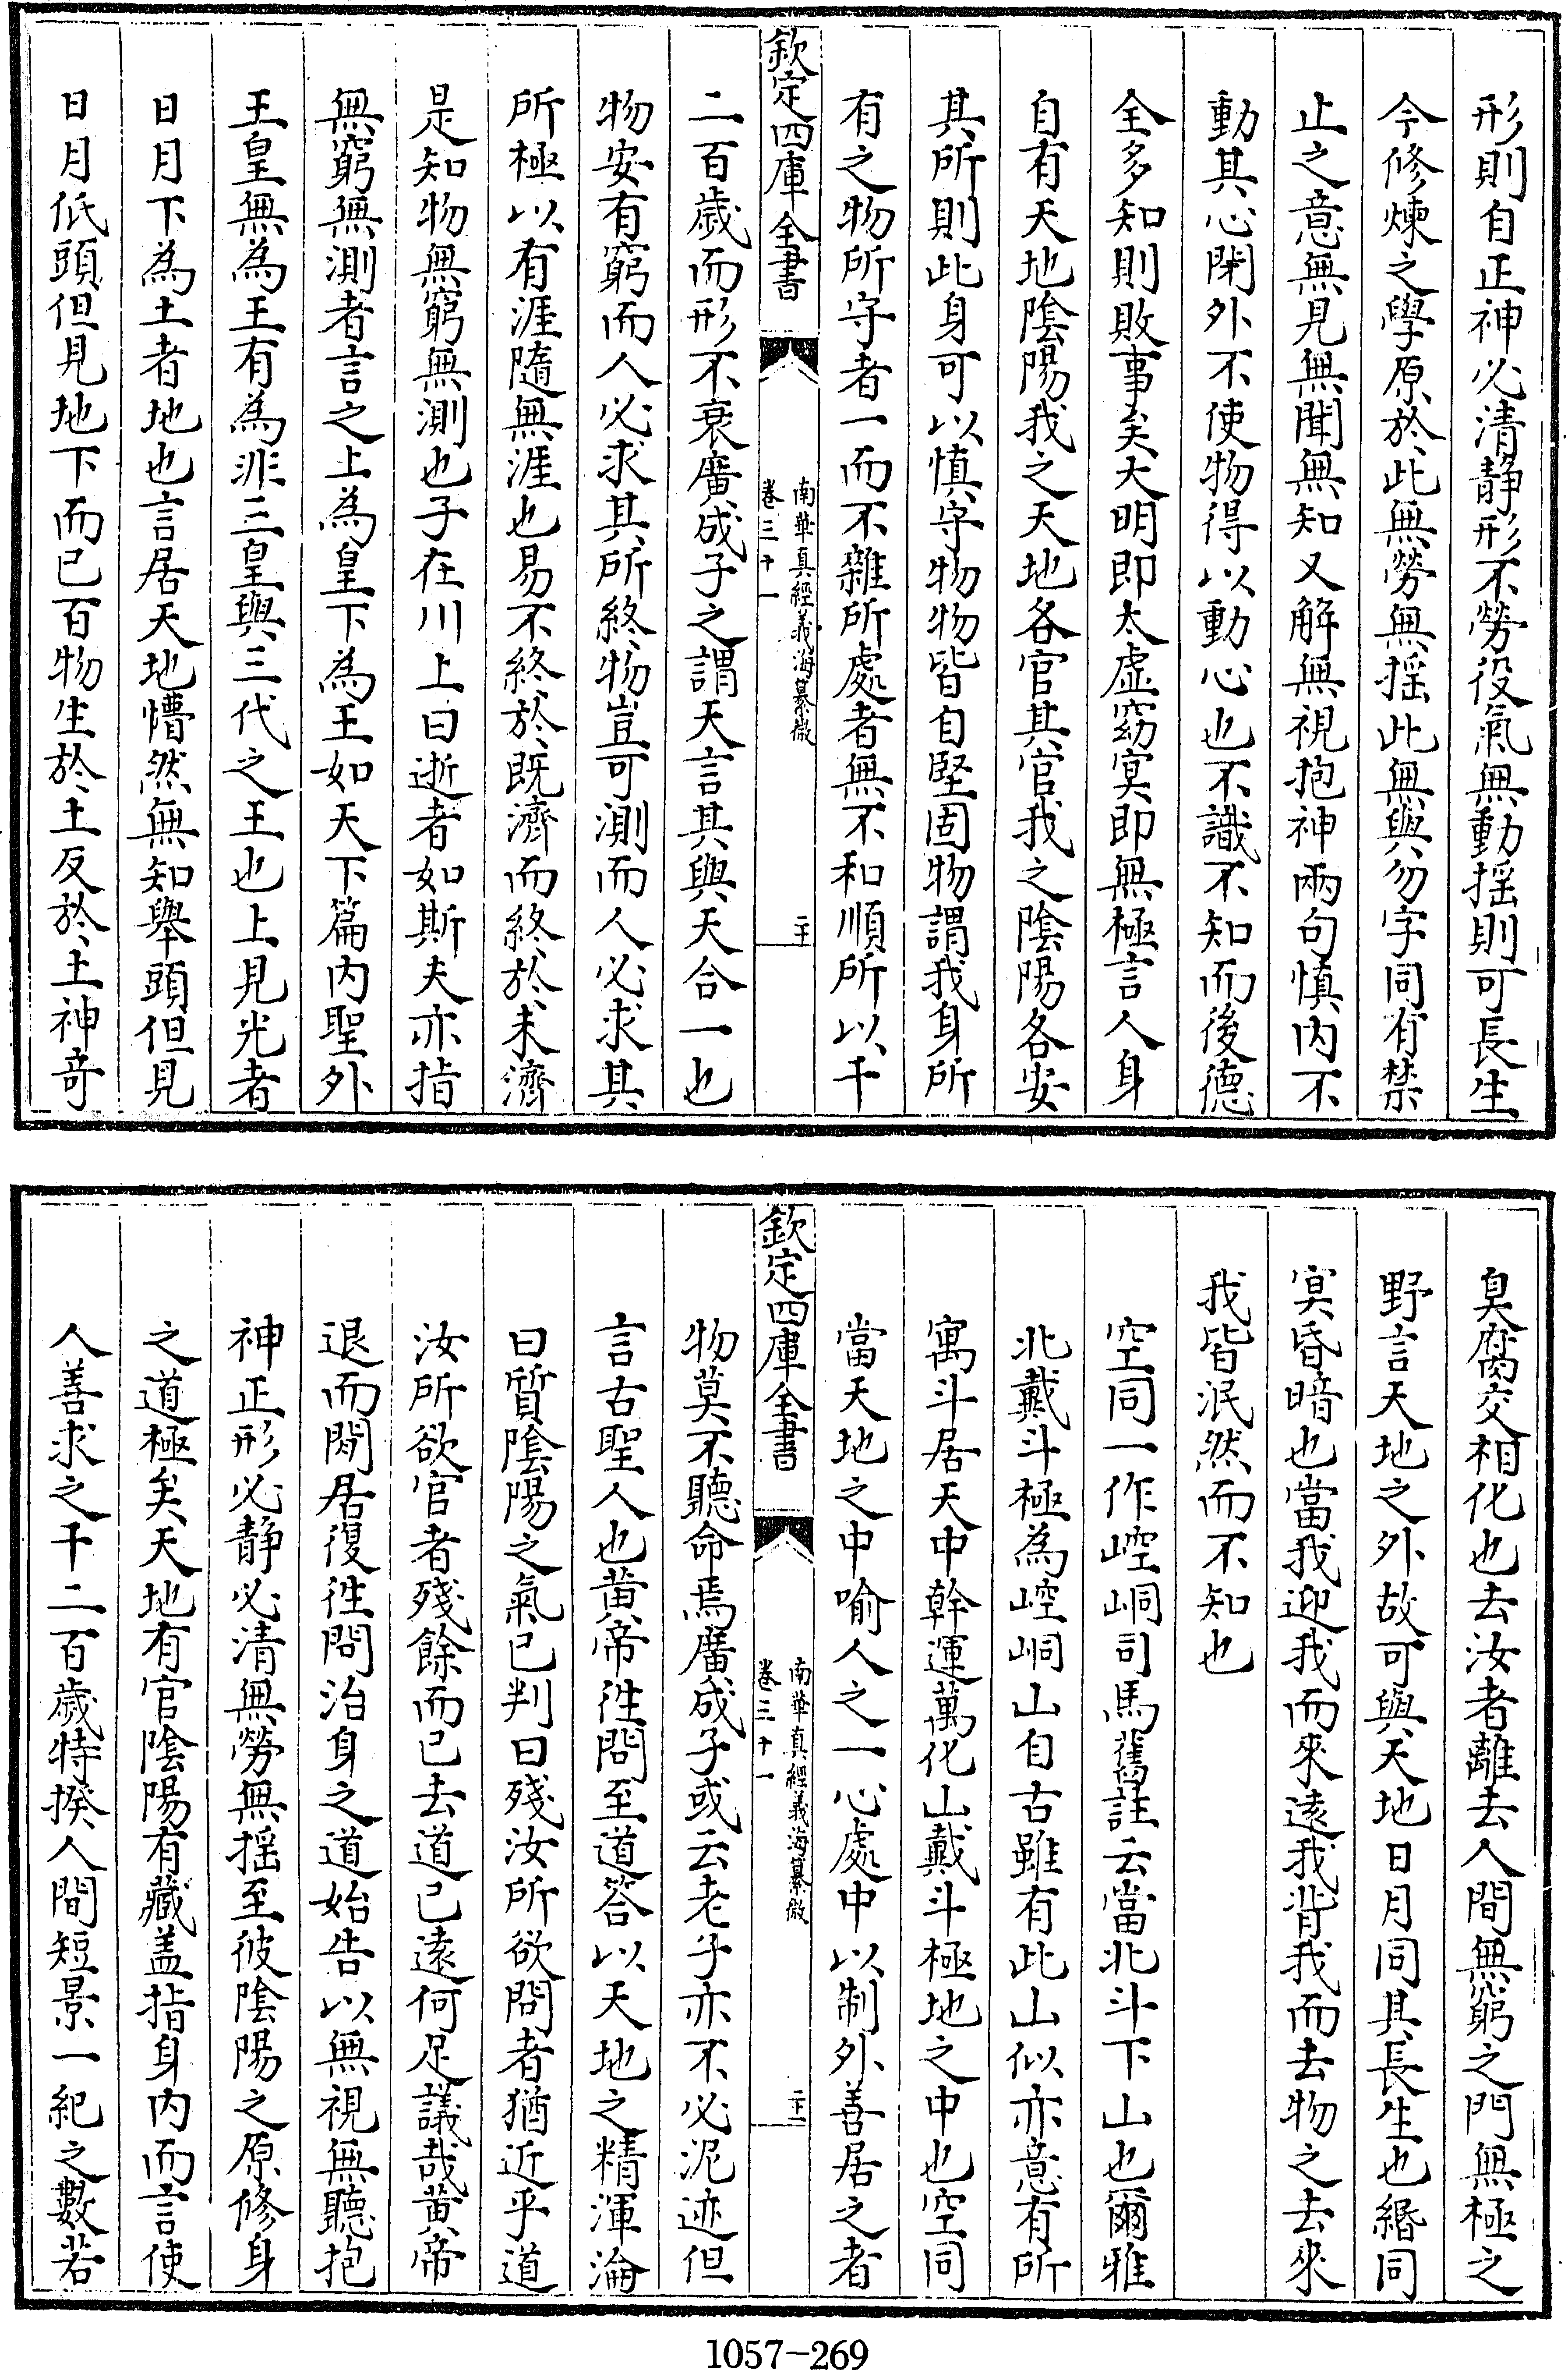 形則自正神必清静形不勞役氣無動揺則可長生
今修煉之學原於此無勞無揺此無與勿字同有禁
止之意無見無聞無知又解無視抱神兩句慎内不
動其心閉外不使物得以動心也不識不知而後德
全多知則敗事矣大明即太虚窈冥即無極言人身
自有天地隂陽我之天地各官其官我之隂陽各安
其所則此身可以慎守物物皆自堅固物謂我身所
有之物所守者一而不雜所處者無不和順所以千
欽定四庫全書
南華真經義海纂微
卷三十一
二十
二百歳而形不衰廣成子之謂天言其與天合一也
物安有窮而人必求其所終物豈可測而人必求其
所極以有涯隨無涯也易不終於既濟而終於未濟
是知物無窮無測也子在川上曰逝者如斯夫亦指
無窮無測者言之上為皇下為王如天下篇内聖外
王皇無為王有為非三皇與三代之王也上見光者
日月下為土者地也言居天地懵然無知舉頭但見
日月低頭但見地下而已百物生於土反於土神奇
臭腐交相化也去汝者離去人間無窮之門無極之
野言天地之外故可與天地日月同其長生也緡同
冥昏暗也當我迎我而來遠我背我而去物之去來
我皆泯然而不知也
空同一作崆峒司馬舊註云當北斗下山也爾雅
北戴斗極為崆峒山自古雖有此山似亦意有所
寓斗居天中幹運萬化山戴斗極地之中也空同
當天地之中喻人之一心處中以制外善居之者
欽定四庫全書
南華真經義海纂微
卷三十一
二十一
物莫不聽命焉廣成子或云老子亦不必泥迹但
言古聖人也黄帝徃問至道答以天地之精渾淪
曰質隂陽之氣已判曰殘汝所欲問者猶近乎道
汝所欲官者殘餘而已去道已遠何足議哉黄帝
退而閒居復徃問治身之道始告以無視無聽抱
神正形必静必清無勞無揺至彼隂陽之原修身
之道極矣天地有官隂陽有藏盖指身内而言使
人善求之千二百歳特揆人間短景一紀之數若
1057-269